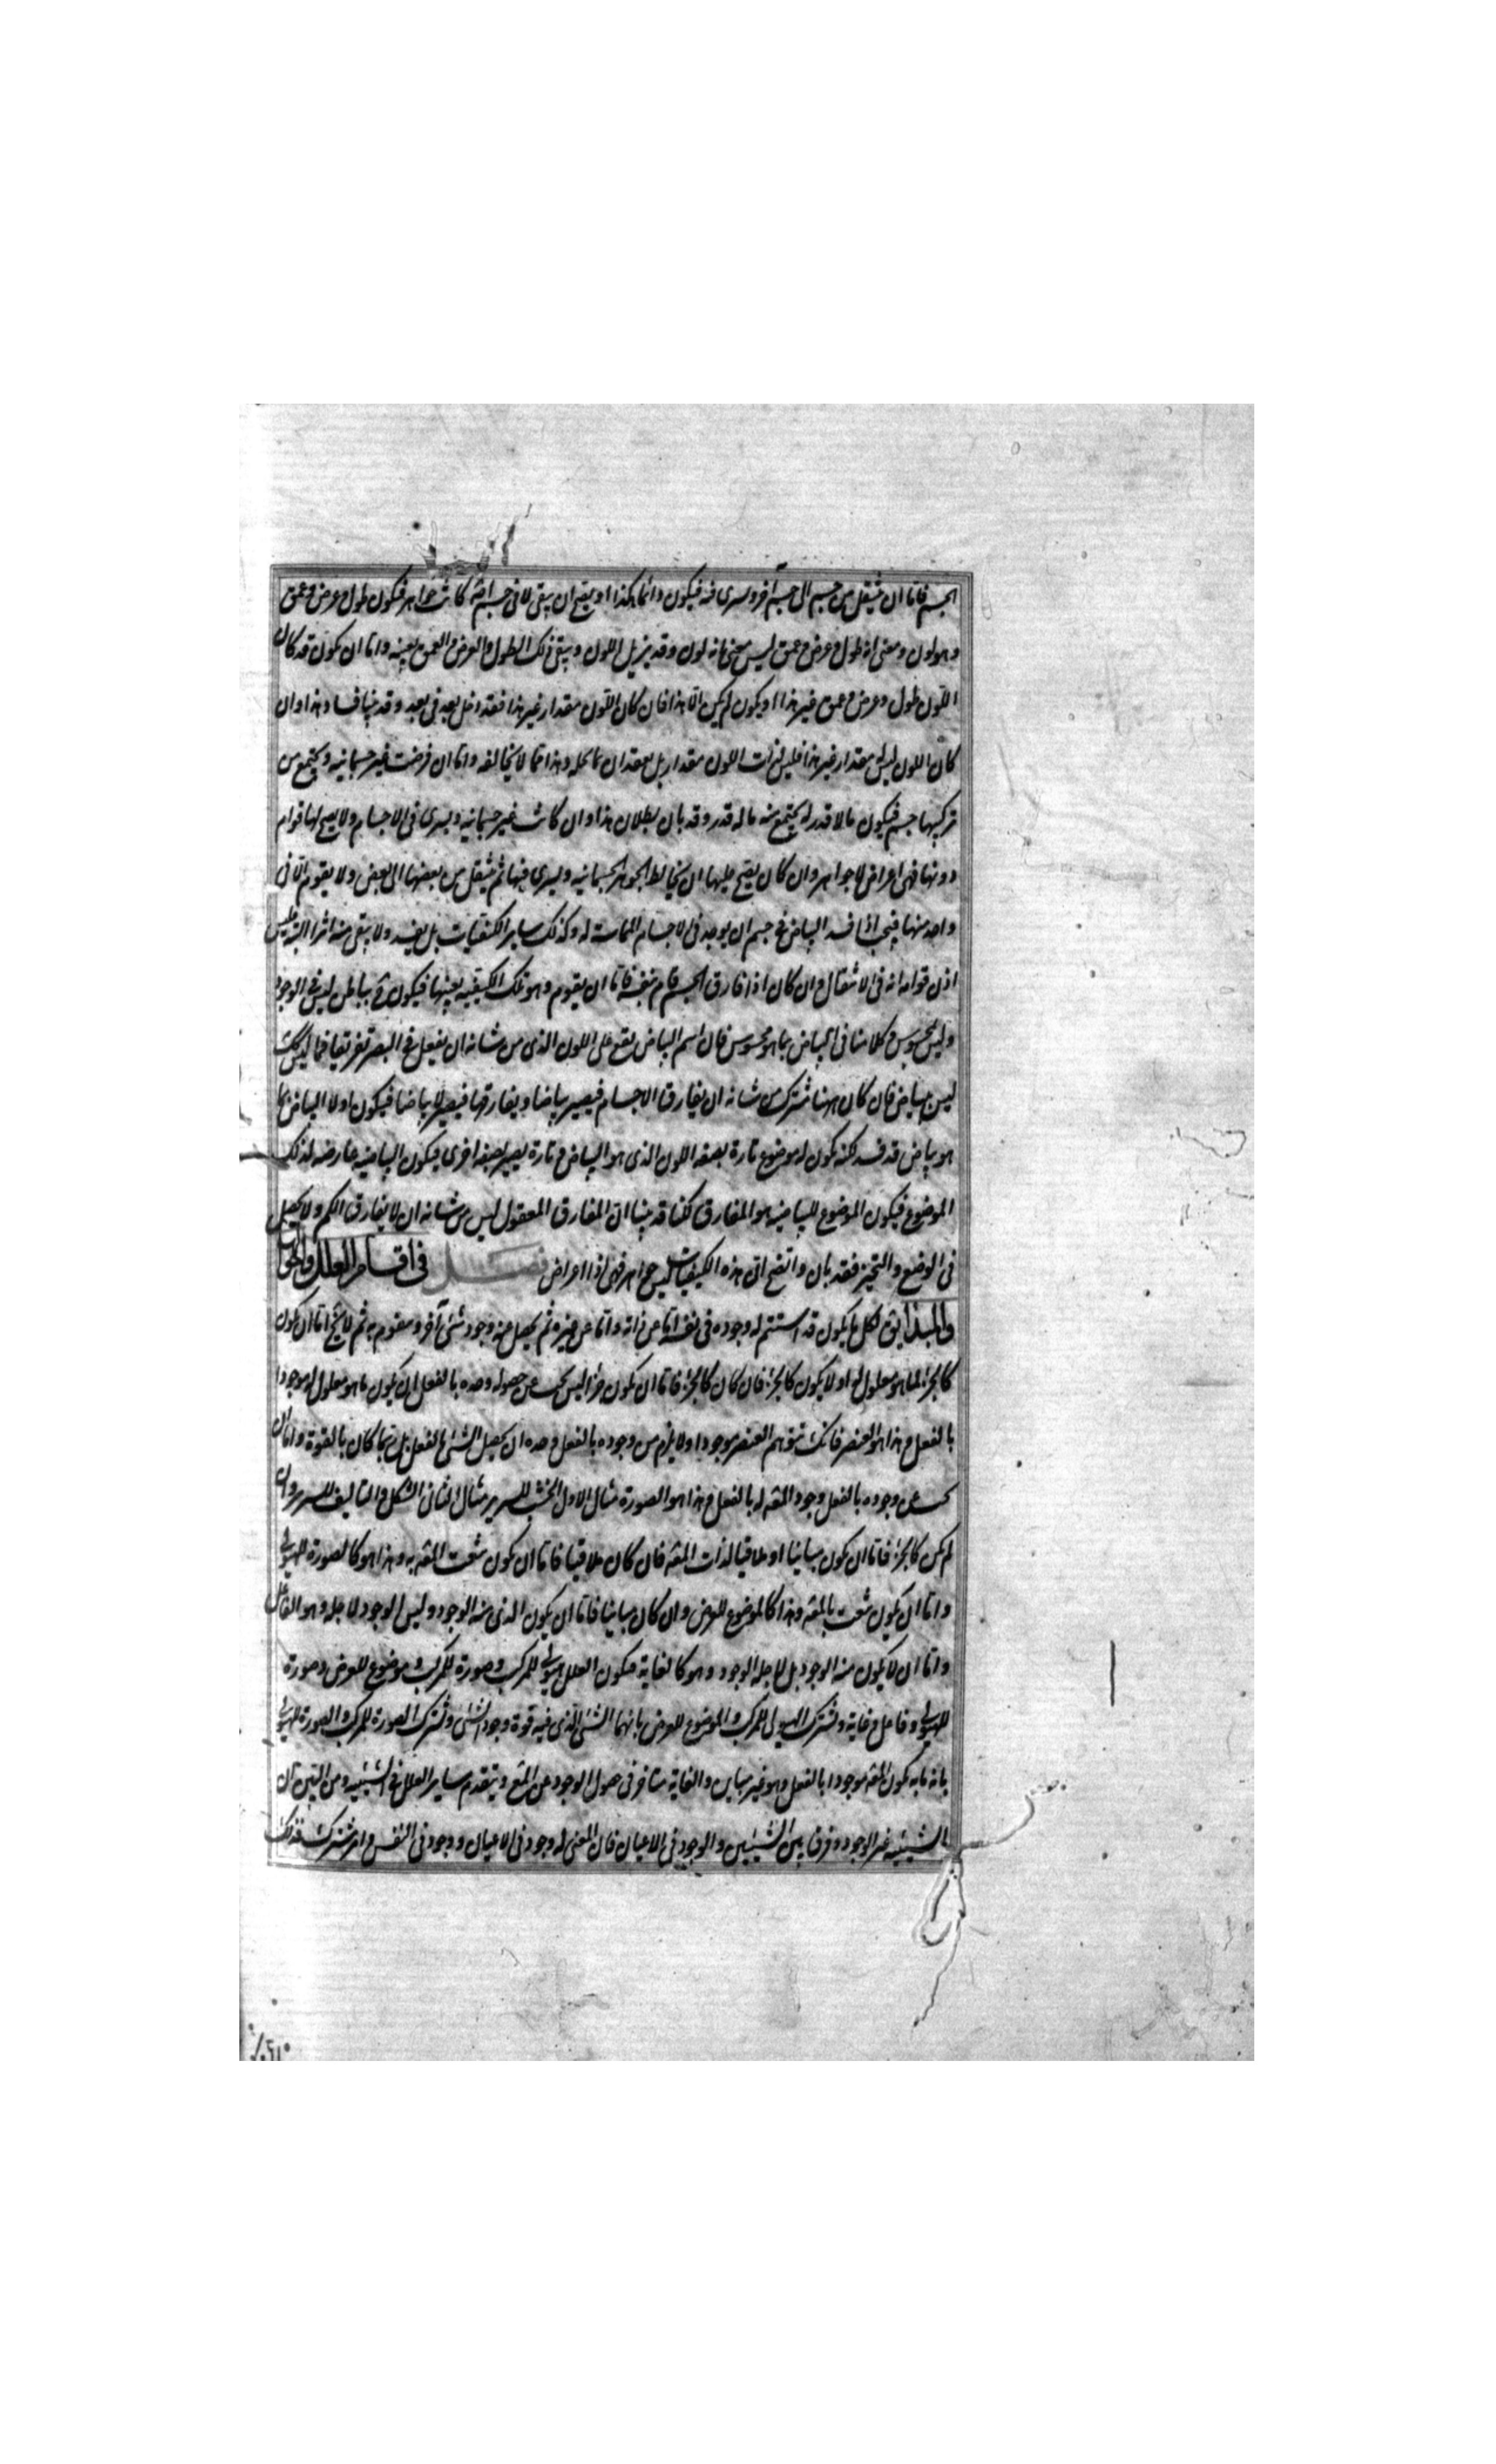 الجسم فاما ان ينتقل من جسم الى جسم آخر ويسرى فيه فيكون دائما هكذا او يصح ان يبقى لا في جسم فان كانت جواهر فيكون طول وعرض وعمق
وهو لون ومعنى انه طول وعرض وعمق ليس معنى انه لون وقد يزيل اللون ويبقى ذلك الطول والعرض والعمق بعينه واما ان يكون قد كان
اللون طول وعرض وعمق غير هذا او يكون لم يكن الا هذا فان كان اللون مقدار غير هذا فقد دخل بعد في بعد وقد بينا فساد هذا وان
كان اللون ليس مقدار غير هذا فليس لذات اللون مقدار بل بمقدار ما يحله وهذا مما لا يخالفه واما ان فرضت غير جسمانيه ويجتمع من
تركيبها جسم فيكون ما لا قدر له يجتمع منه ما له قدر وقد بان بطلان هذا وان كانت غير جسمانيه ويسرى في الاجسام ولا يصح لها قوام
دونها فهي اعراض لا جواهر وان كان يصح عليها ان يخالط الجوهر الجسمانيه ويسرى فيها ثم ينتقل من بعضها الى بعض ولا يقوم الا في
واحد منها فيجب اذا فسد البياض في جسم ان يوجد في الاجسام المماسة له وكذلك ساير الكيفيات بل يفسد ولا يبقى منه اثر البتة فليس
اذن قوامه انه في الانتقال وان كان اذا فارق الجسم قام بنفسه فاما ان يقوم وهو تلك الكيفيه بعينها فيكون بياض ليس في الوجود
وليس محسوس وكلامنا في البياض بما هو محسوس فان اسم البياض يقع على اللون الذى من شانه ان يفعل في البصر تفريقا فما ليس كذلك
ليس بياض فان كان ههنا مشترك من شانه ان يفارق الاجسام فيصير بياضا ويفارقها فيصير لا بياضا فيكون اولا البياض بما
هو بياض قد فسد لكنه يكون له موضوع تارة بصفه اللون الذى هو البياض وتارة يصير بصفه اخرى فيكون البياضيه عارضه لذلك
الموضوع فيكون الموضوع للبياضيه هو المفارق لكنا قد بينا ان المفارق المعقول ليس من شانه ان لا يفارق الكم ولا يحصل
في الوضع والتحيز فقد بان واتضح ان هذه الكيفيات ليس جواهر فهي اذا اعراض فصل في اقسام العلل واحوالها
والمبدا يق لكل ما يكون قد استتم له وجوده في نفسه اما عن ذاته واما عن غيره ثم يحصل عنه وجود شئ آخر ومقوم به ثم لا يخ اما ان يكون
كالجزء لما هو معلول له او لا يكون كالجزء فان كان كالجزء فاما ان يكون جزءا ليس يجب عن حصوله وحده بالفعل ان يكون ما هو معلول له موجودا
بالفعل وهذا هو العنصر فانك تتوهم العنصر موجودا ولا يلزم من وجوده بالفعل وحده ان يحصل الشئ بالفعل بل ربما كان بالقوة واما ان
يجب عن وجوده بالفعل وجود المعه له بالفعل وهذا هو الصورة مثال الاول الخشب للسرير مثال الثانى الشكل والتاليف للسرير وان
لم يكن كالجزء فاما ان يكون مباينا او ملاقيا لذات المعه فان كان ملاقيا فاما ان يكون ينعت المعه به وهذا هو كالصورة للهيولى
واما ان يكون ينعت بالمعه وهذا كالموضوع للعرض وان كان مباينا فاما ان يكون الذى منه الوجود وليس الوجود لاجله وهو الفاعل
واما ان لا يكون منه الوجود بل لاجله الوجود وهو كالغاية فيكون العلل هيولى للمركب وصورة للمركب وموضوع للعرض وصورة
للهيولى وفاعل وغاية وتشترك الهيولى للمركب والموضوع للعرض بانهما الشئ الذى فيه قوة وجود الشئ وتشترك الصورة للمركب والصورة للهيولى
بانه ما به يكون المعه موجودا بالفعل وهو غير مباين والغاية متاخر في حصول الوجود عن المع ويتقدم ساير العلل في الشيئيه ومن البين ان
الشيئيه غير الوجود وفرق بين الشيئين والوجود في الاعيان فان المعنى له وجود في الاعيان ووجود في النفس وامر مشترك فذلك